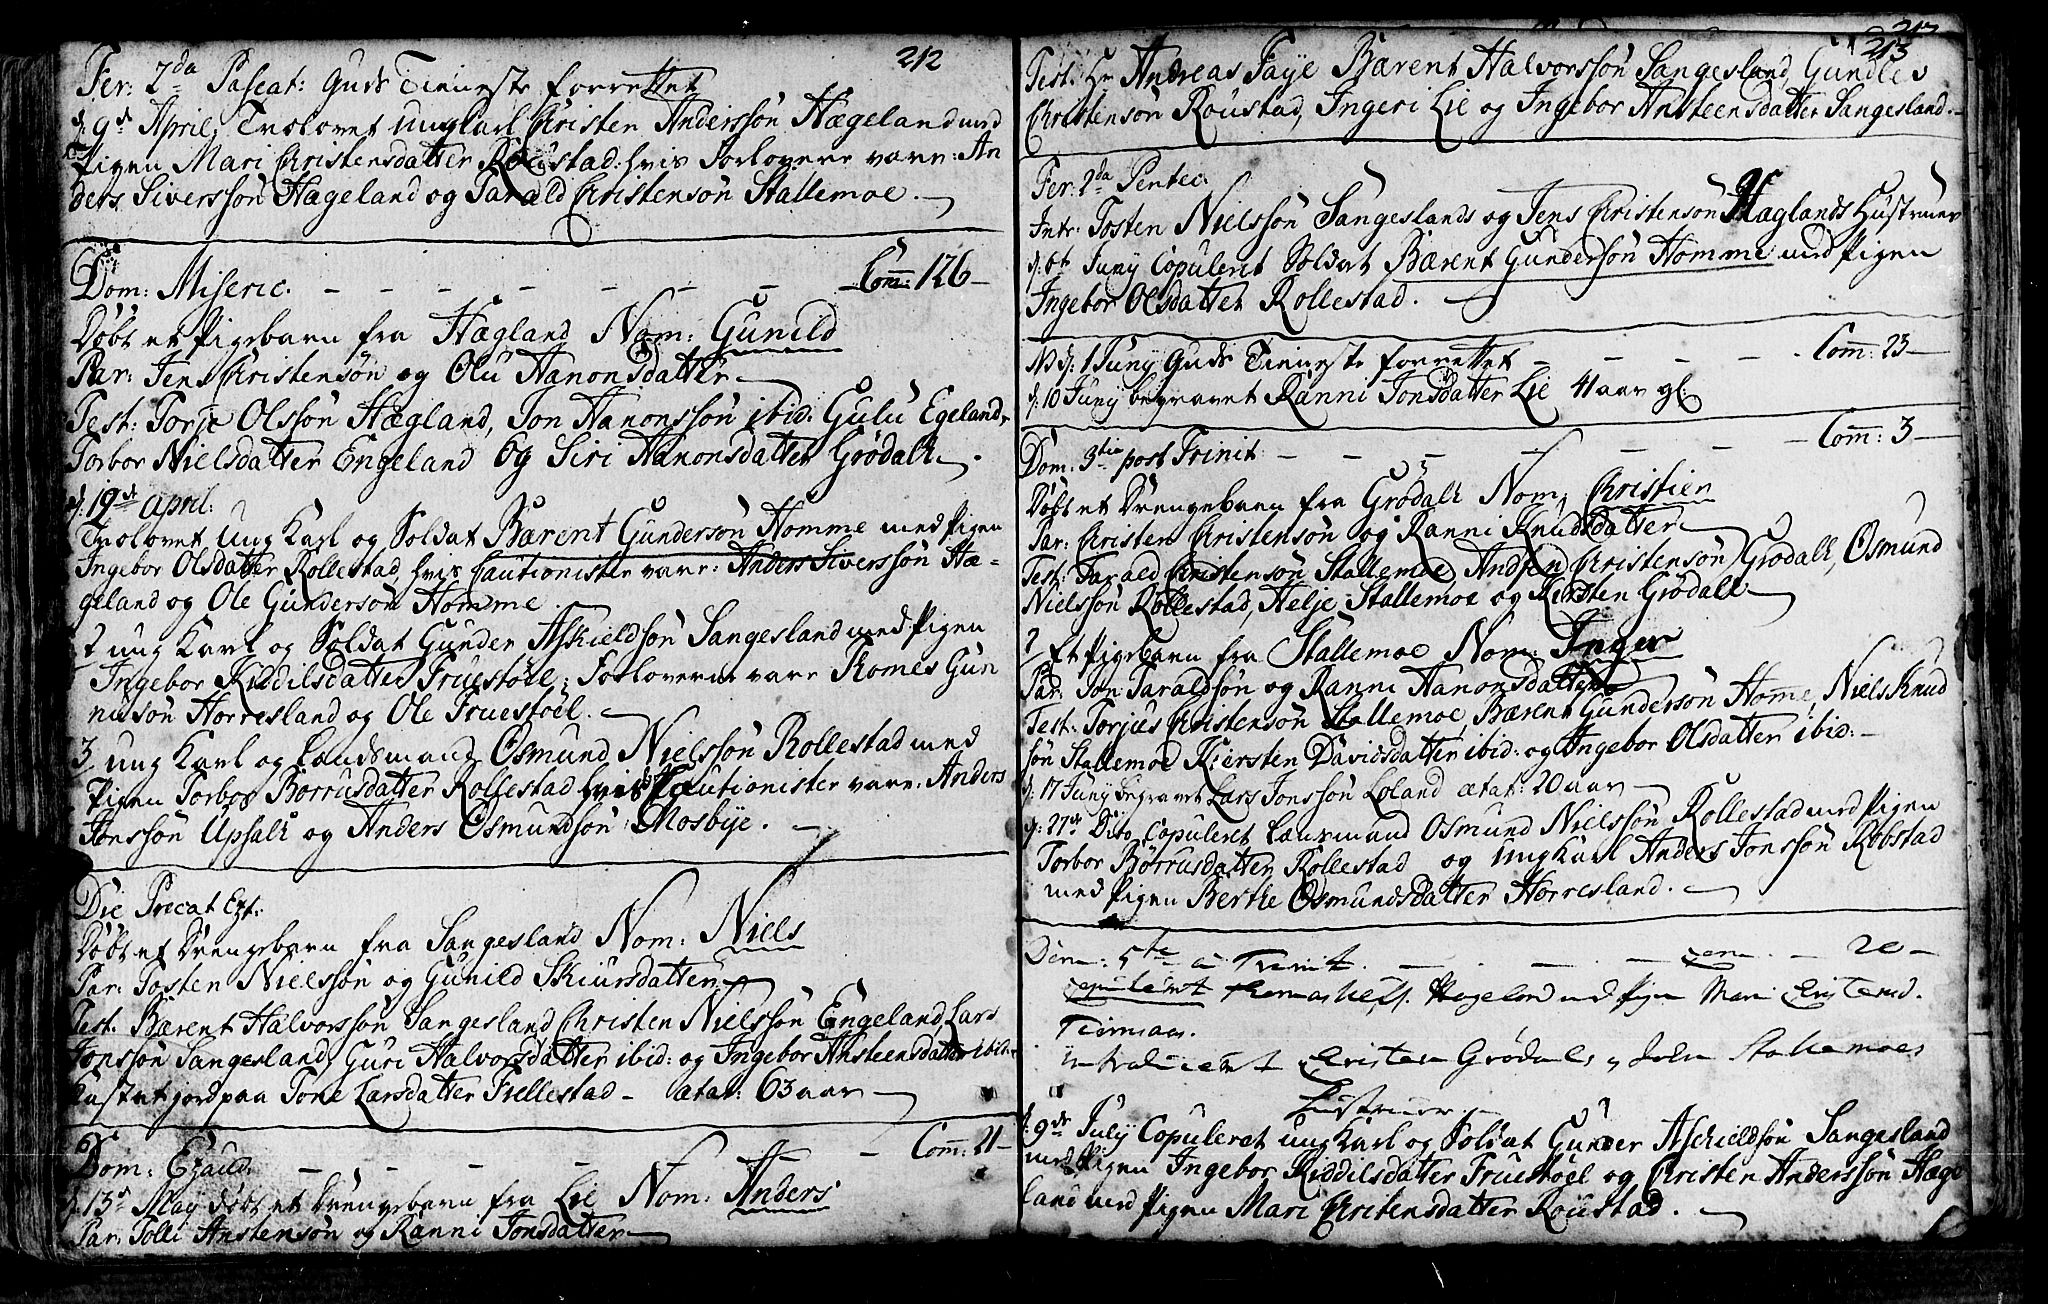 212
Fer: 2da Pascat: Guds Tieneste forrettet
d: 9de April, Trolovet ungKarl Christen Andersson Hægeland med
Pigen Mari Christensdatter Roustad, hvis Forlovere vare: An
ders Siversson Hægeland og Tarald Christensøn Stallemoe.
Dom: Miseric. - - - - - - - Com: 126
Døbt et Pigebarn fra Hægland Nom: Gunild
Par: Jens Christensøn og Olu Hanonsdatter
Test: Torje Olssøn Hægland, Jon Hanonssøn ibid: Gulu Egeland,
Torbor Nielsdatter Engeland Og Siri Hanonsdatter Grødals.
d: 19de April:
Trolovet Ung Karl og Soldat Bærent Gundersøn Homme med Pigen
Ingebor Olsdatter Rollestad, hvis Cautionister vare: Anders Siverssøn Hæ-
geland og Ole Gundersøn Homme.
2 ung Karl og Soldat Gunder Askieldsøn Sangesland med Pigen
Ingebor Kiddilsdatter Fruestøel; Forloverne vare Tomes Gun
nusøn Horresland og Ole Fruestøel.
3, ung Karl og Landsmand Osmund Nielssøn Rollestad med
Pigen Torbor Børrusdatter Rollestad hvis Cautionister vare: Anders
Jonssøn Upsall og Anders Osmundsøn Mosbye.
Die Precat Ext:
Døbt et Drengebarn fra Sangesland Nom: Niels
Par: Tosten Nielssøn og Gunild Skiursdatter
Test. Bærent Halvorssøn Sangesland Christen Nielssøn Engeland, Lars
Jonssøn Sangesland, Guri Halvorsdatter ibid: og Ingebor Ansteensdatter ibid:
Kastet jord paa Tone Larsdatter Frellestad - ætat: 63 aar
Dom: Exaud: - - - - - - Com: 21
d: 13de May døbt et Drengebarn fra Lie Nom: Anders
Par: Tolli Anstensøn og Ranni Jonsdatter
213
Test: Hr Andreas Faye Bærent Halvorssøn Sangesland, Gundlev
Christensøn Roustad, Ingeri Lie og Ingebor Ansteensdatter Sangesland.
Fer: 2da Pentec:
Intr: Tosten Nielssøn Sangeslands og Jens Christensøn Hæglands Hustruer
d: 6t Juny Copuleret Soldat Bærent Gundersøn Homme med Pigen
Ingebor Olsdatter Rollestad.
d: 1 Juny Guds Tieneste forrettet - - - - Com: 23
d: 10 Juny begravet Ranni Jonsdatter Lie 41 aar gl.
Dom: 3tia post Trinit - - - - - - Com: 3
Døbt et Drengebarn fra Grødals Nom, Christien
Par: Christen Christensøn og Ranni Knudsdatter
Test: Tarald Christensøn Stallemoe, Christensøn Grødals, Osmund
Nielssøn Rollestad, Helje Stallemoe og Kirsten Grødals
2 Et Pigebarn fra Stallemoe Nom: Inger
Par: Jon Taraldsøn og Ranni Hanonsdatter
Test: Torjus Christensøn Stallemoe Bærent Gundersøn Home, Niels Knud
søn Stallemoe Kiersten Davidsdatter ibid: og Ingebor Olsdatter ibid:
d: 17 Juny begravet Lars Jonssøn Loland ætat: 20 aar
d: 27de Dito, Copuleret Landmand Osmund Nielssøn Rollestad med Pigen
Torbor Børrusdatter Rollestad og Ung Karl Anders Jonssøn Robstad
med Pigen Berthe Osmundsdatter Horresland.
Dom: 5te a Trinit. - - - - Com - 20
Copuleret Tomas Hægeland med Pigen Mari
introduceret Christen Grødals og John Stallemoes
Hustruer
d: 9de July Copuleret ungKarl og Soldat Gunder Aschieldsøn Sangesland
med Pigen Ingebor Kiddilsdatter Fruestøel og Christen Anderssøn Hæge
land med Pigen Mari Chritensdatter Roustad.